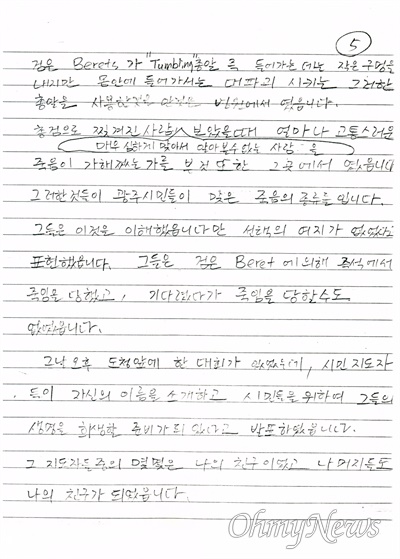 5
검은 Berets 가 "Tumbling"총알 즉 들어가는 데는 작은 구멍을
내지만 몸안에 들어가서는 대파괴 시키는 그러한
총알을 사용한것을 안것도 병원에서 였습니다.
총검으로 찢겨진 사람 보았을때 얼마나 고통스러운
매우 심하게 맞아서 알아볼수 없는 사람 을
죽음이 가해졌는가를 본것 또한 그곳에서 였습니다
그러한것들이 광주시민들이 맞은 죽음의 종류들입니다.
그들은 이것을 이해했습니다만 선택의 여지가 없었다고
표현했습니다. 그들은 검은 Beret 에 의해 즉석에서
죽임을 당했고, 기다렸다가 죽임을 당할수도
있었습니다.
그날 오후 도청앞에 한 대회가 있었는데, 시민 지도자
들이 자신의 이름을 소개하고 시민들을 위하여 그들의
생명을 희생할 준비가 되 있다고 발표하였습니다.
그 지도자들중의 몇몇은 나의 친구이었고 나머지들도
나의 친구가 되었습니다.
OhmyNews